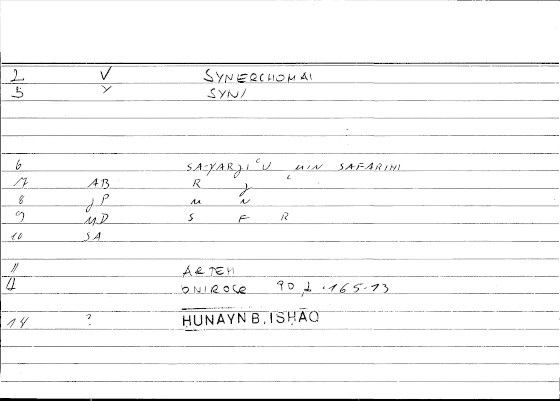 2 V SYNERCHOMAI
5 Y SYN/
6 SA-YARJIʿU MIN SAFARIHI
7 AB R J ʿ
8 JP M N
9 MD S F R
10 SA
11 ARTEM
4 ONIROCR 90,2 .165.13
14 ? HUNAYN B. ISḤĀQ